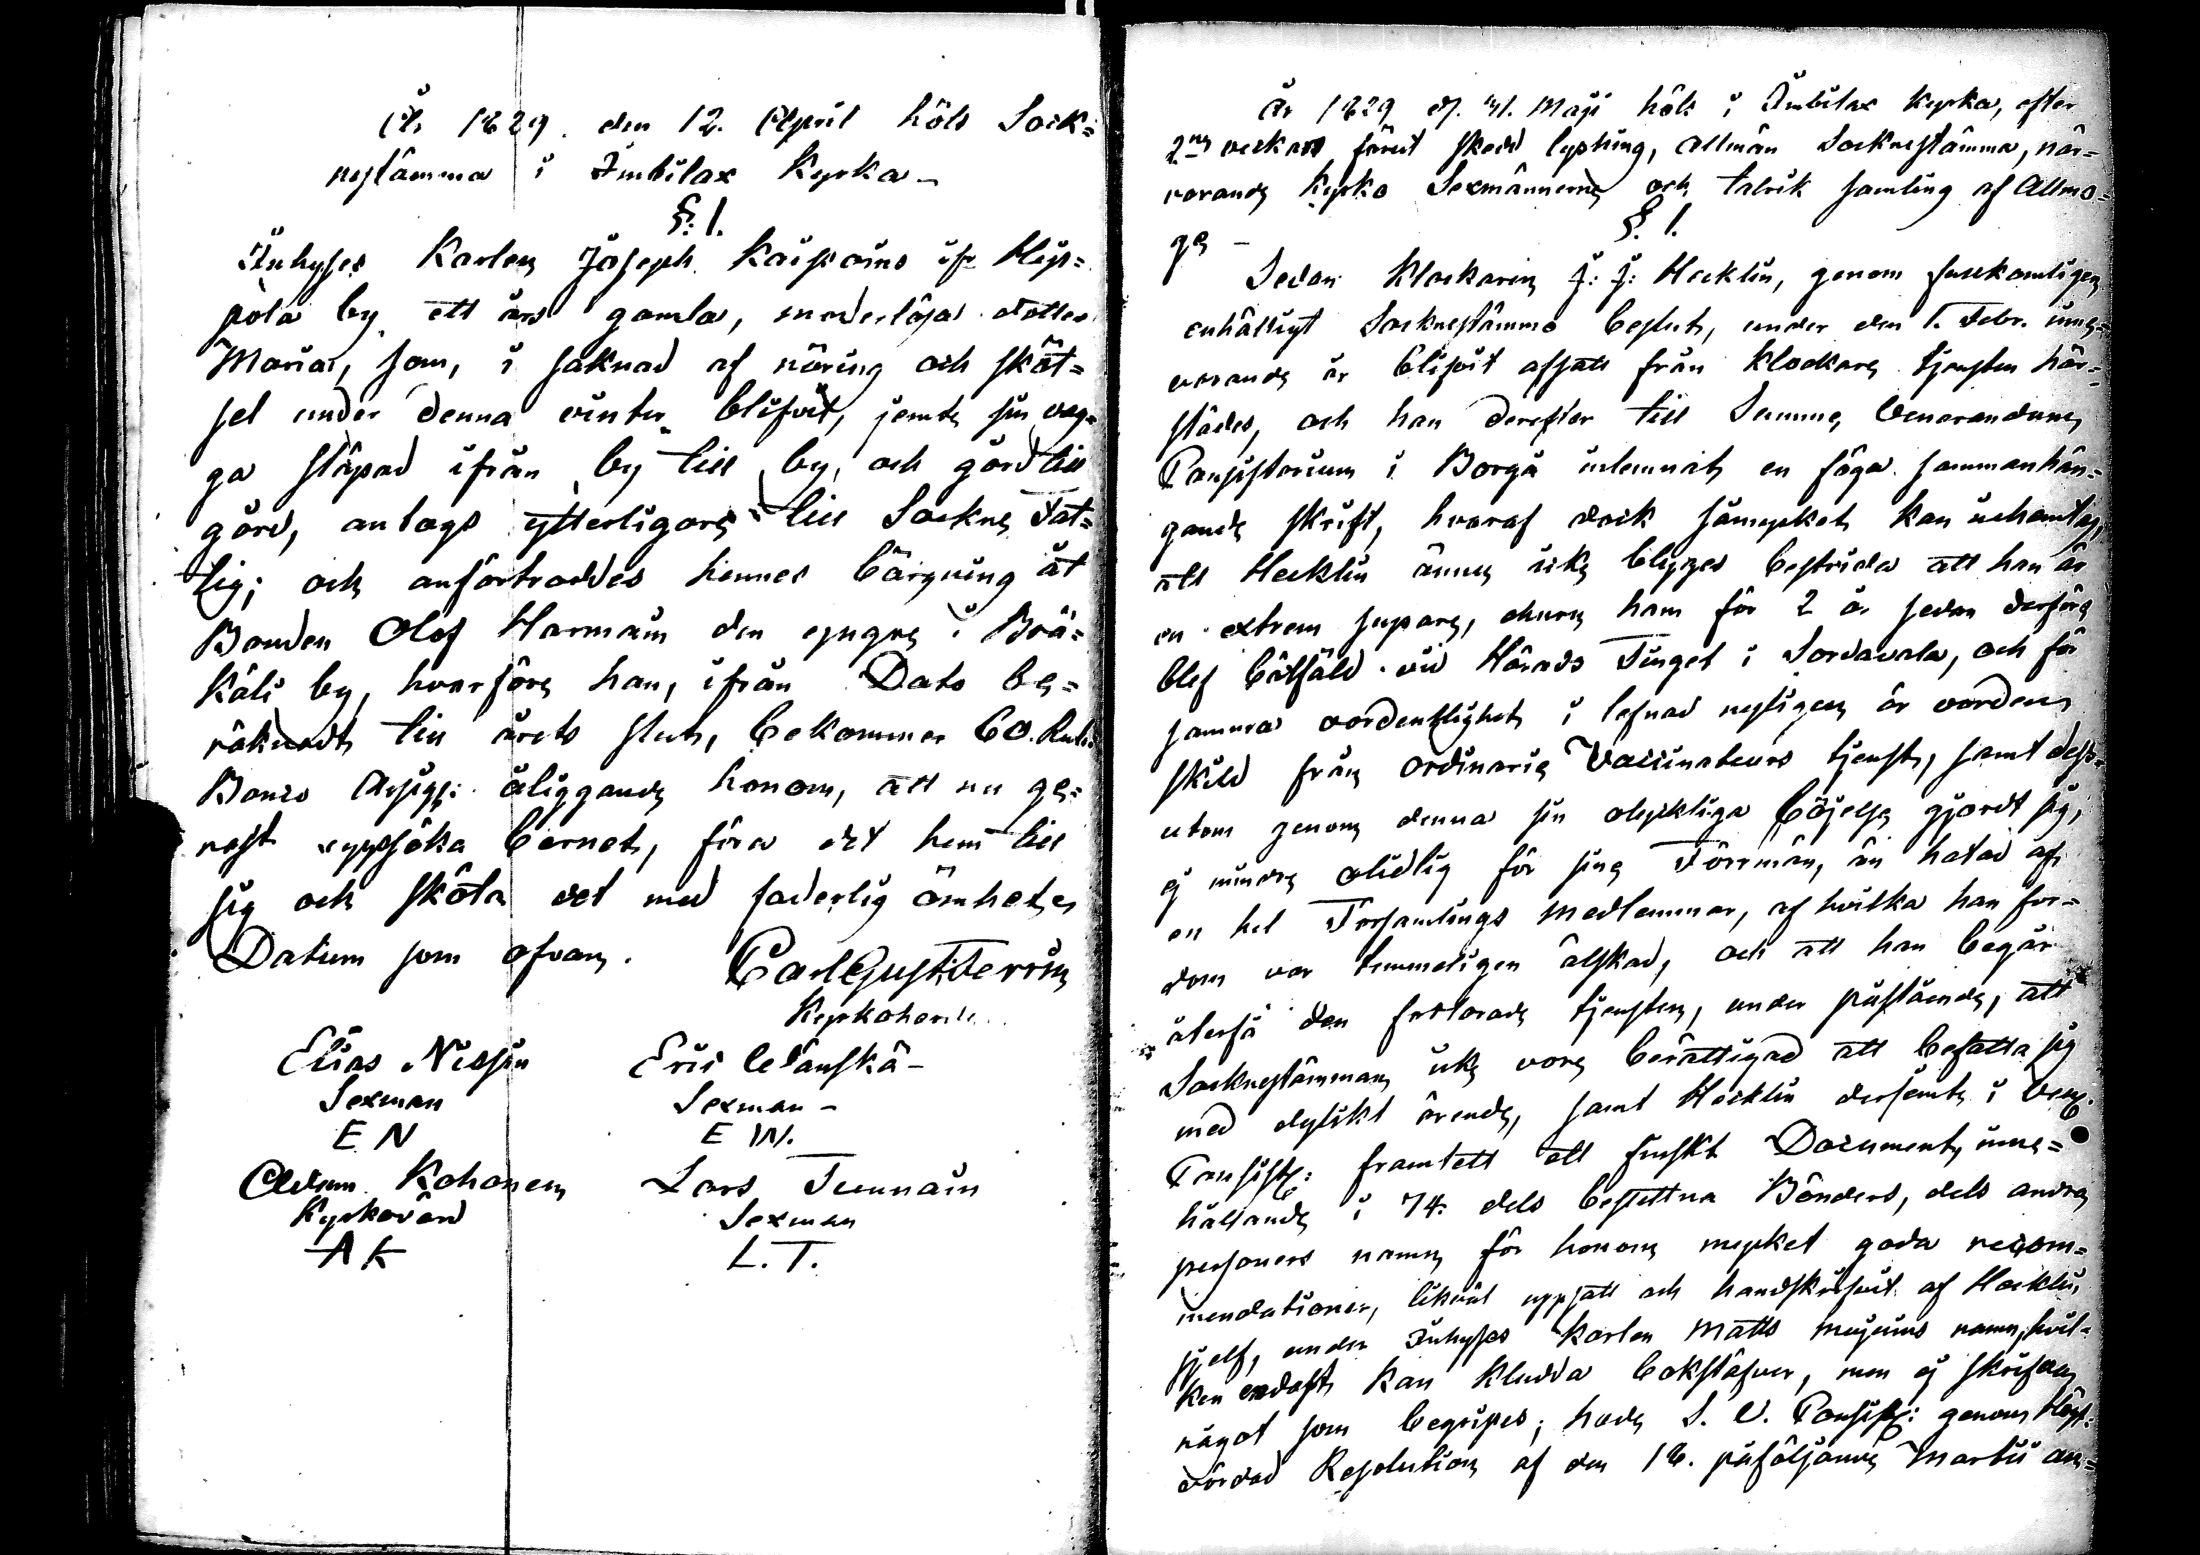 År 1829. den 12. April höls Sock=
nestämma i Imbilax Kyrka –
§. 1.
Inhyses Karlen Joseph Kaipains ifr.
pola by ett års gamla, moderlösa dotter
Maria, som, i saknad af näring och sköt=
sel under denna vinter blifvit, jemte sin vag=
ga släpad ifrån by till by, och gård till
gård, antogs ytterligare till Sockne Fat=
tig; och anförtroddes hennes bärgning åt
Bonden Olof Harmain den yngre i Brä=
käli by, hvarföre han, ifrån Dato be=
räknadt till årets slut, bekommer 60. Rub.
Banco Assign: åliggande honom, att nu ge=
nast uppsöka barnet, föra det hem till
sig och sköta det med faderlig ömhet.
Datum som ofvan. Carl Gust. Ferrin
Kyrkoherde.
Elias Nissin Eric Wänskä –
Sexman Sexman –
E N E W.
Adam Kohonen Lars Tunnain
Kyrkovärd Sexman
A K L. T.
År 1829 d. 31. Maji höls i Imbilax Kyrka, efter
2ne veckors förut skedd lysning, allmän Socknestämma, när=
varande Kyrko Sexmännerne och talrik samling af Allmo=
ge –
§. 1.
Sedan Klockaren J: J: Hecklin, genom
enhälligt Socknestämmo beslut, under den 1. Febr. inne=
varande år blifvit afsatt från Klockare tjensten här=
städes, och han derefter till Summe Venerandum
Consistorium i Borgå inlemnat en föga sammanhän=
gande skrift, hvaraf dock såmycket kan inhämtas,
att Hecklin ännu icke blyges bestrida att han är
en extrem supare, churu ham för 2 år sedan derföre
blef bötfäld vid Härads Tinget i Sordavala, och för
samma oordentlighet i lefnad nyligen är vorden
skild från ordinarie Vaccinateurs tjenst, samt dess=
utom genom denna sin olyckliga böjelse gjordt sig,
ej mindre olidlig för sine Förmän, än hatad af
en hel Församlings medlemmar, af hvilka han for=
dom var temmeligen älskad, och att han begär
återfå den förlorade tjensten, under påstående, att
Socknestämman icke vore berättigad att befatta sig
med dylikt ärende, samt Hecklin derjemte i Ven.
Consist: framtett ett finskt Document, inne=
hållande i 74. dels besuttna Bönders, dels andre
personers namn för honom mycket goda recom=
mendationer, likväl uppsatt och handskrifvit af Hecklin
sjelf, under Inhyses Karlen Matts namn, hvil=
ken endast kan kludda bokstäfver, men ej skrifva
något som begripes; hade S. V. Consist: genom Högt=
vördad Resolution af den 18. påföljande Martii an=